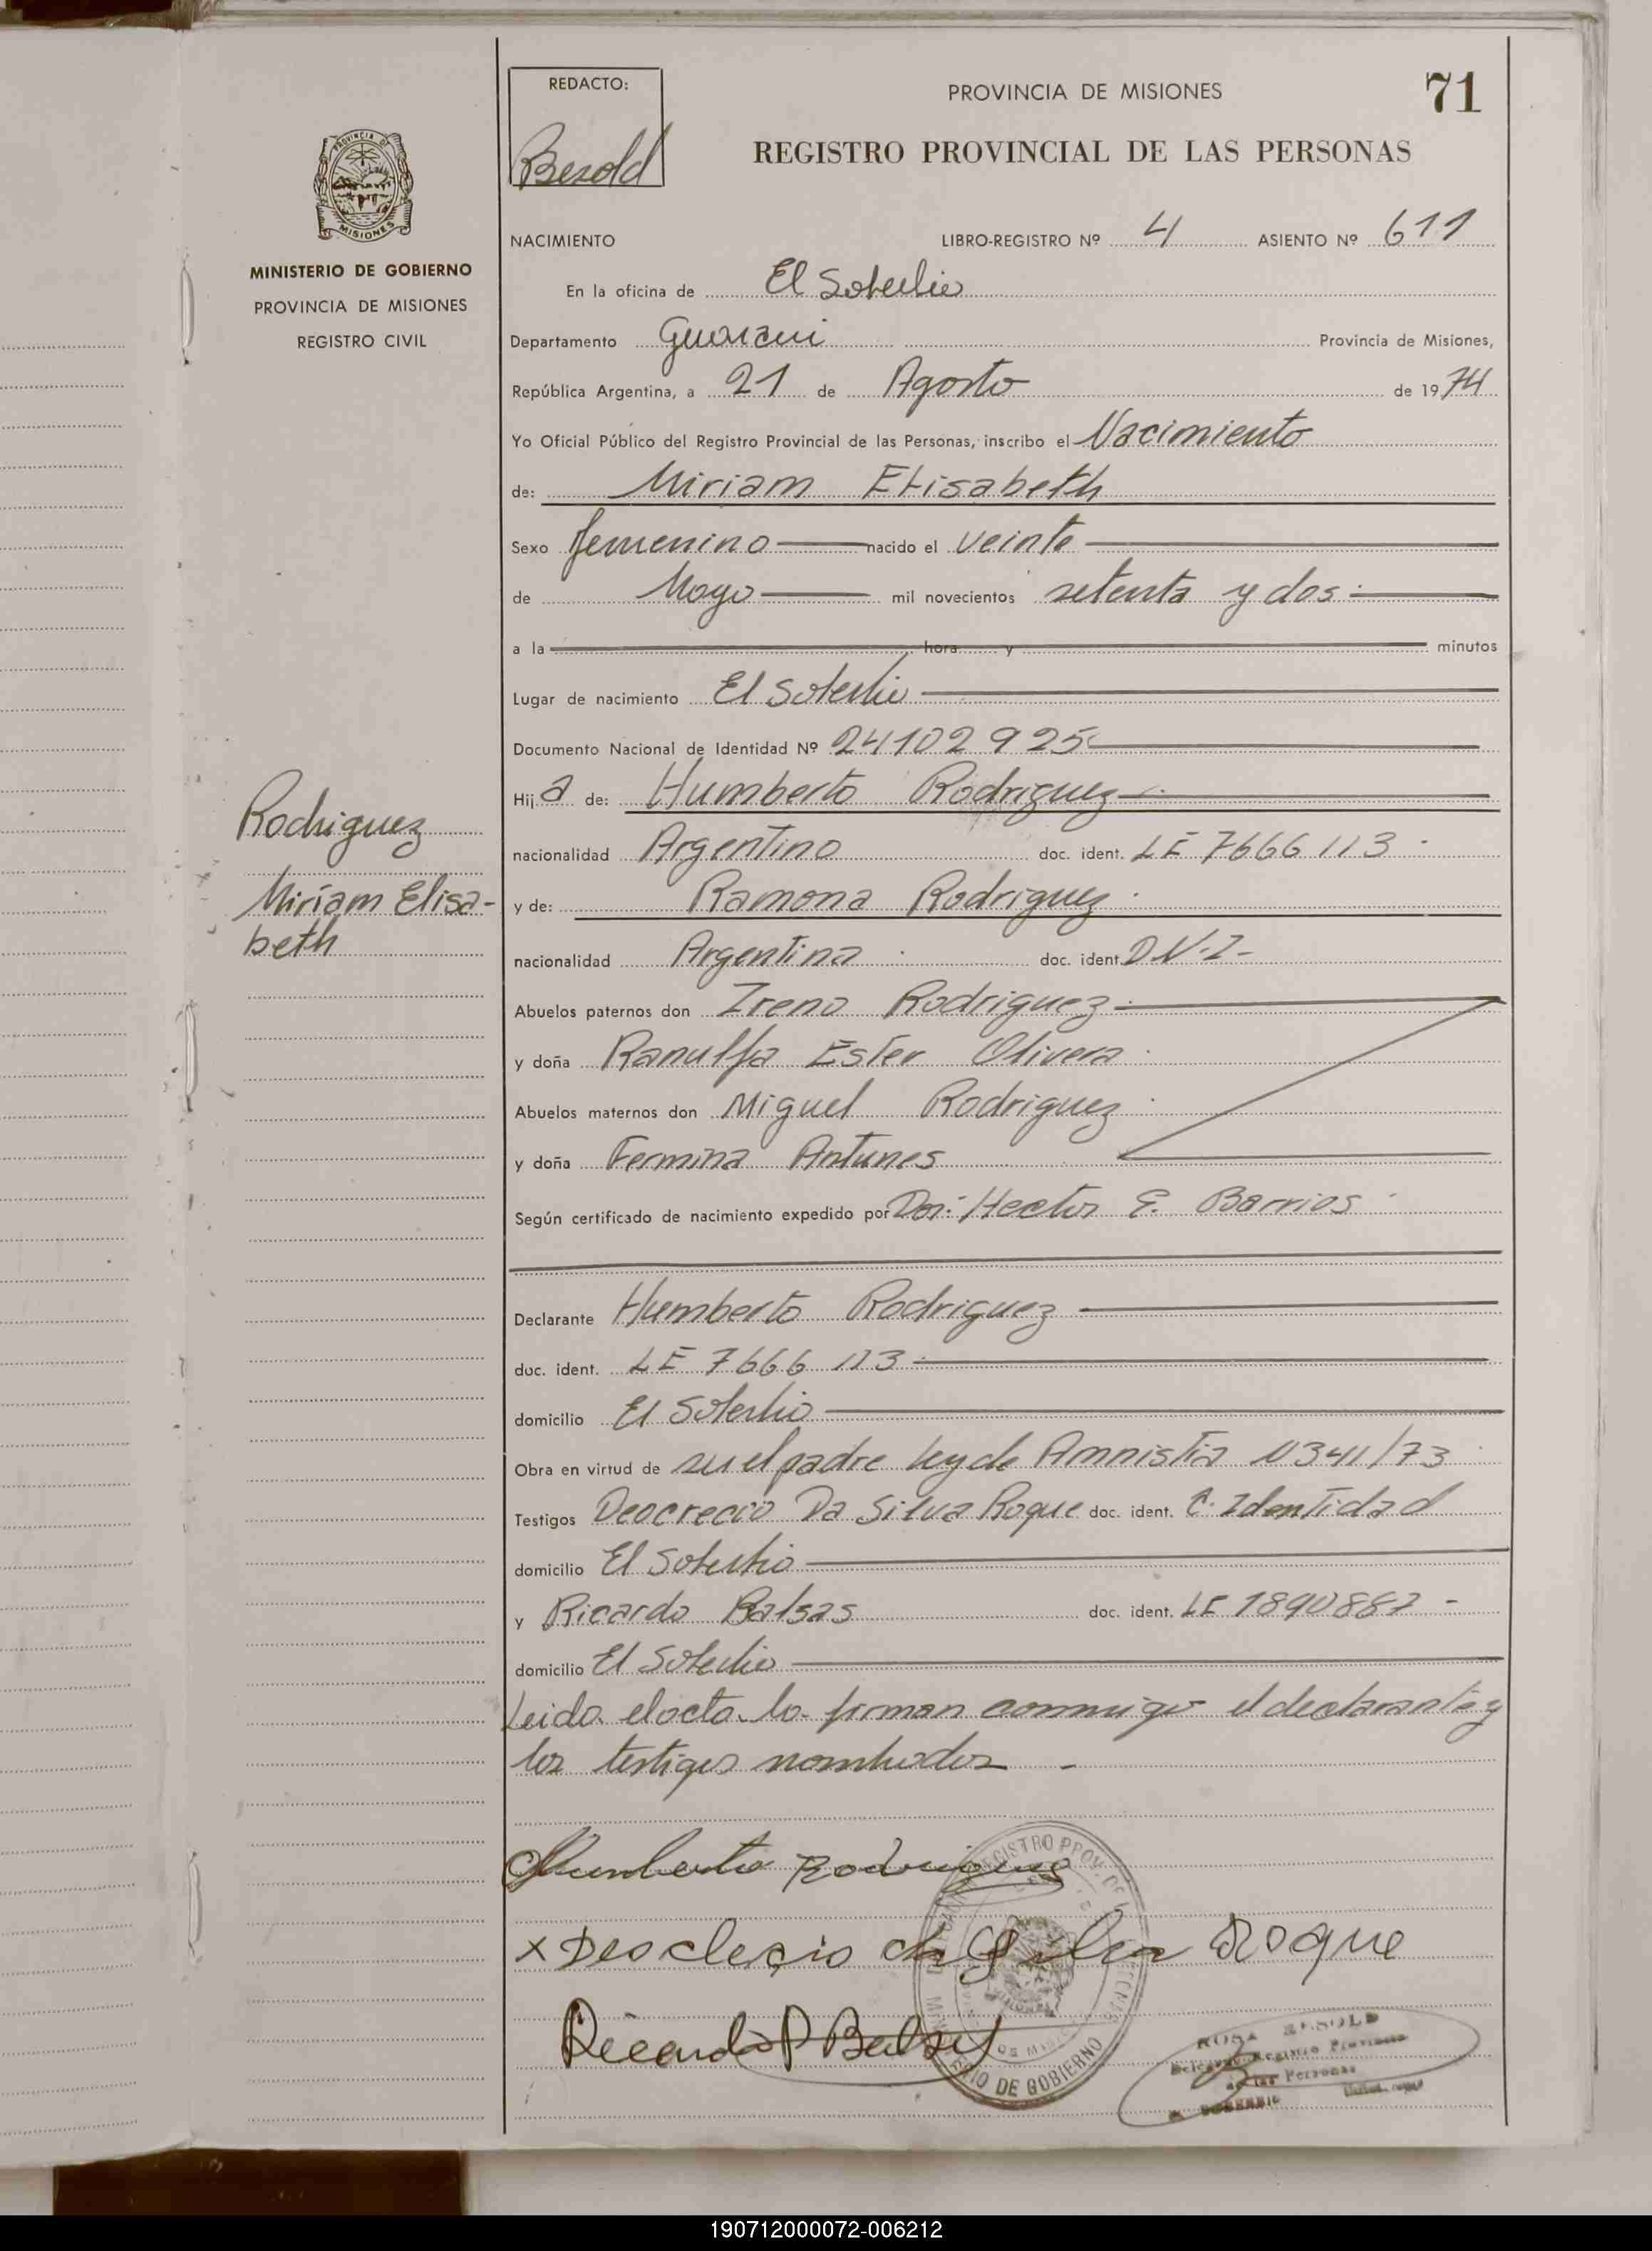 REDACTO:
Bezold
PROVINCIA DE MISIONES
71
REGISTRO PROVINCIAL DE LAS PERSONAS
PROVINCIA DE
MISIONES
MINISTERIO DE GOBIERNO
PROVINCIA DE MISIONES
REGISTRO CIVIL
NACIMIENTO LIBRO-REGISTRO Nº 4 ASIENTO Nº 611
En la oficina de El Soberbio
Departamento Guarani Provincia de Misiones,
República Argentina, a 21 de Agosto de 1974
Yo Oficial Público del Registro Provincial de las Personas, inscribo el Nacimiento
de: Miriam Elisabeth
Sexo femenino nacido el veinte
de Mayo mil novecientos setenta y dos
a la hora y minutos
Lugar de nacimiento El Soberbio
Documento Nacional de Identidad Nº 24102925
Hija de: Humberto Rodriguez
nacionalidad Argentino doc. ident. LE 7666113
y de: Ramona Rodriguez
nacionalidad Argentina doc. ident. D.N.I-
Abuelos paternos don Ireno Rodriguez
y doña Ranulfa Ester Olivera
Abuelos maternos don Miguel Rodriguez
y doña Fermina Antunes
Según certificado de nacimiento expedido por Dor: Hector E. Barrios
Rodriguez
Miriam Elisa-
beth
Declarante Humberto Rodriguez
doc. ident. LE 7666 113
domicilio El Soberbio
Obra en virtud de su el padre Ley de Amnistia
Testigos Deocrecio Da Silva Roque doc. ident. C. Identidad
domicilio El Soberbio
y Ricardo Balsas doc. ident. LE 1890887 -
domicilio El Soberbio
Leida el acta lo firman conmigo el declarante y
los testigos nombrados -
Humberto Rodriguez
x Deoclecio da Silva Roque
Ricardo P Balsas
REGISTRO PROV. DE
DE GOBIERNO
ROSA BEZOLD
Delegado Registro Provincial
de las Personas
190712000072-006212